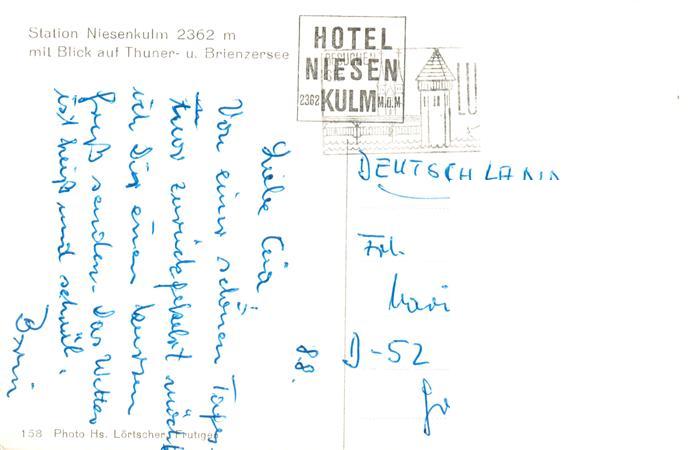 Station Niesenkulm 2362 m
mit Blick auf Thuner- u. Brienzersee
HOTEL
NIESEN
2362 KULM M.ü.M
BESUCHEN
LU
DEUTSCHLAND
Frl.
D-52
8.8.
Liebe
Von einer schönen
zurückgekehrt möcht
ich Dir einen kurzen
Gruß senden. Das Wetter
ist heiß und schwül.
158 Photo Hs. Lörtscher, Frutigen